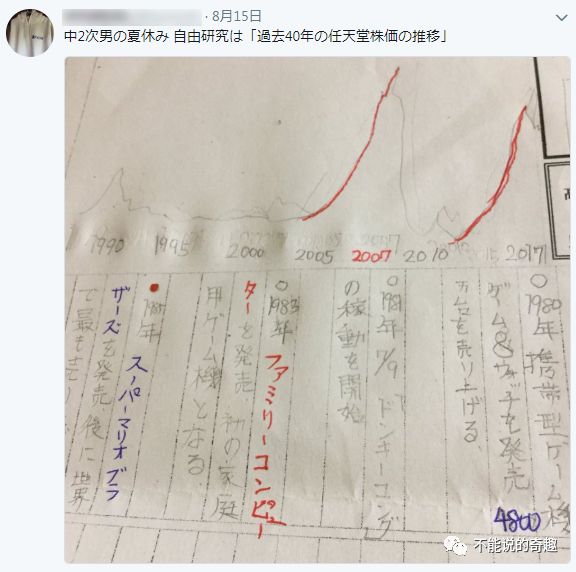 · 8月15日
中2次男の夏休み 自由研究は「過去40年の任天堂株価の推移」
1990 1995 2000 2005 2007 2010 2015 2017
○1980年 携帯型ゲーム機
ゲーム&ウォッチを発売
4800
を売り上げる。
○1981年 7/9 ドンキーコング
の稼動を開始
○1983年 ファミリーコンピュー
ターを発売 初の家庭
用ゲーム機となる
●1985年 スーパーマリオブラ
ザーズを発売 後に世界
で最も売
不能说的奇趣